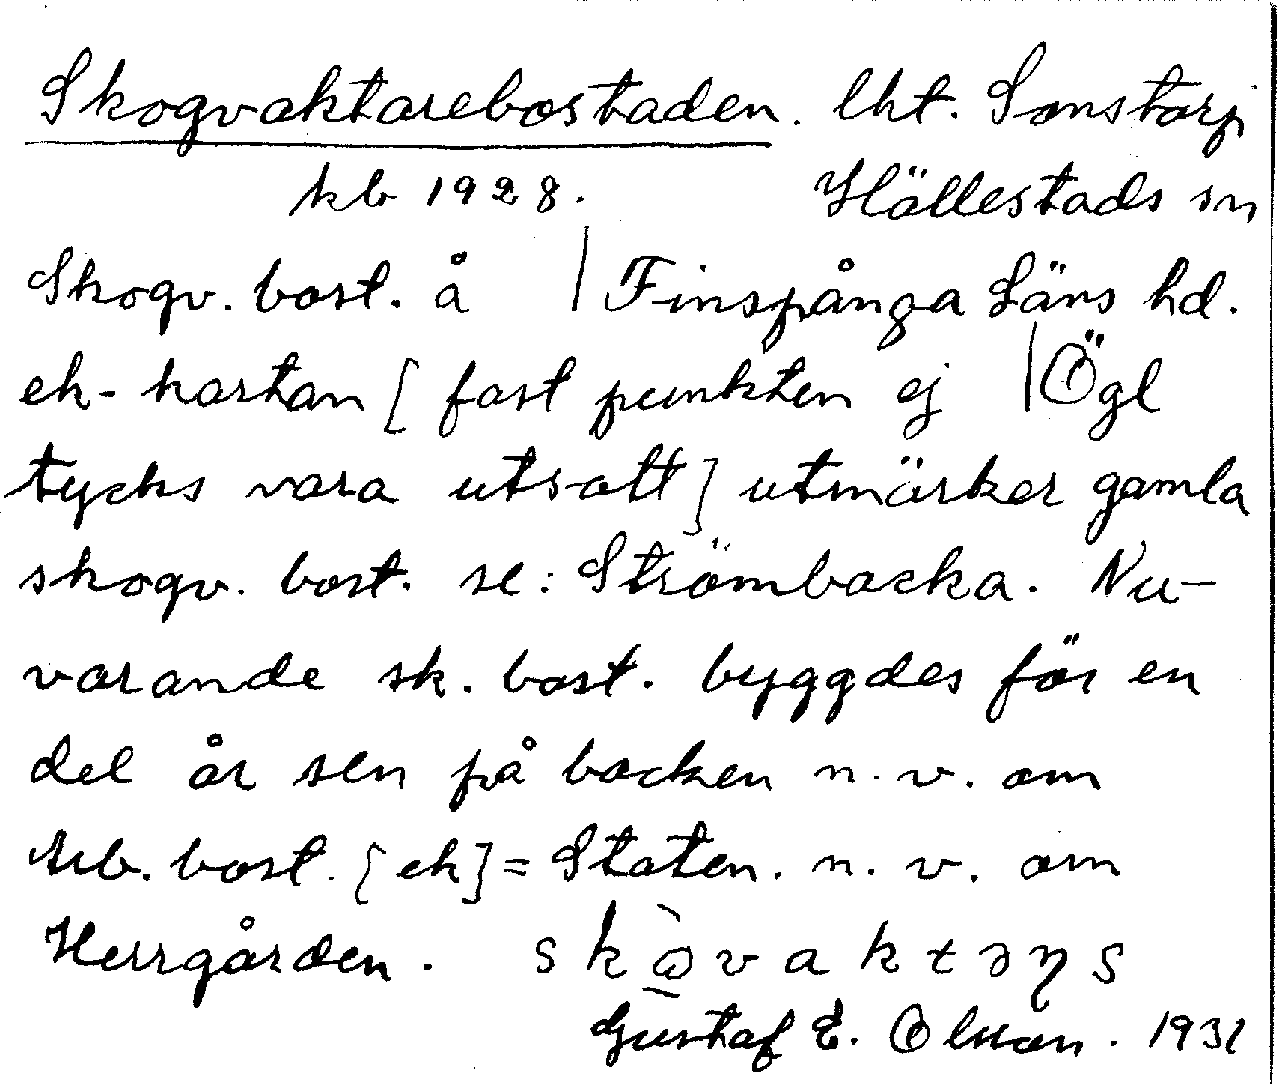 Skogvaktarebostaden. lht. Sonstorp
kb 1928. Hällestads sn
Skogv. bost. å | Finspånga Läns hd.
ek-kartan [fast punkten ej | Ögl
tycks vara utsatt] utmärker gamla
skogv. bost. se: Strömbacka. Nu-
varande sk. bost. byggdes för en
del år sen på backen n. v. om
Arb. bost. [ek] = Staten. n. v. om
Herrgården.
Gustaf E. Olsson. 1931